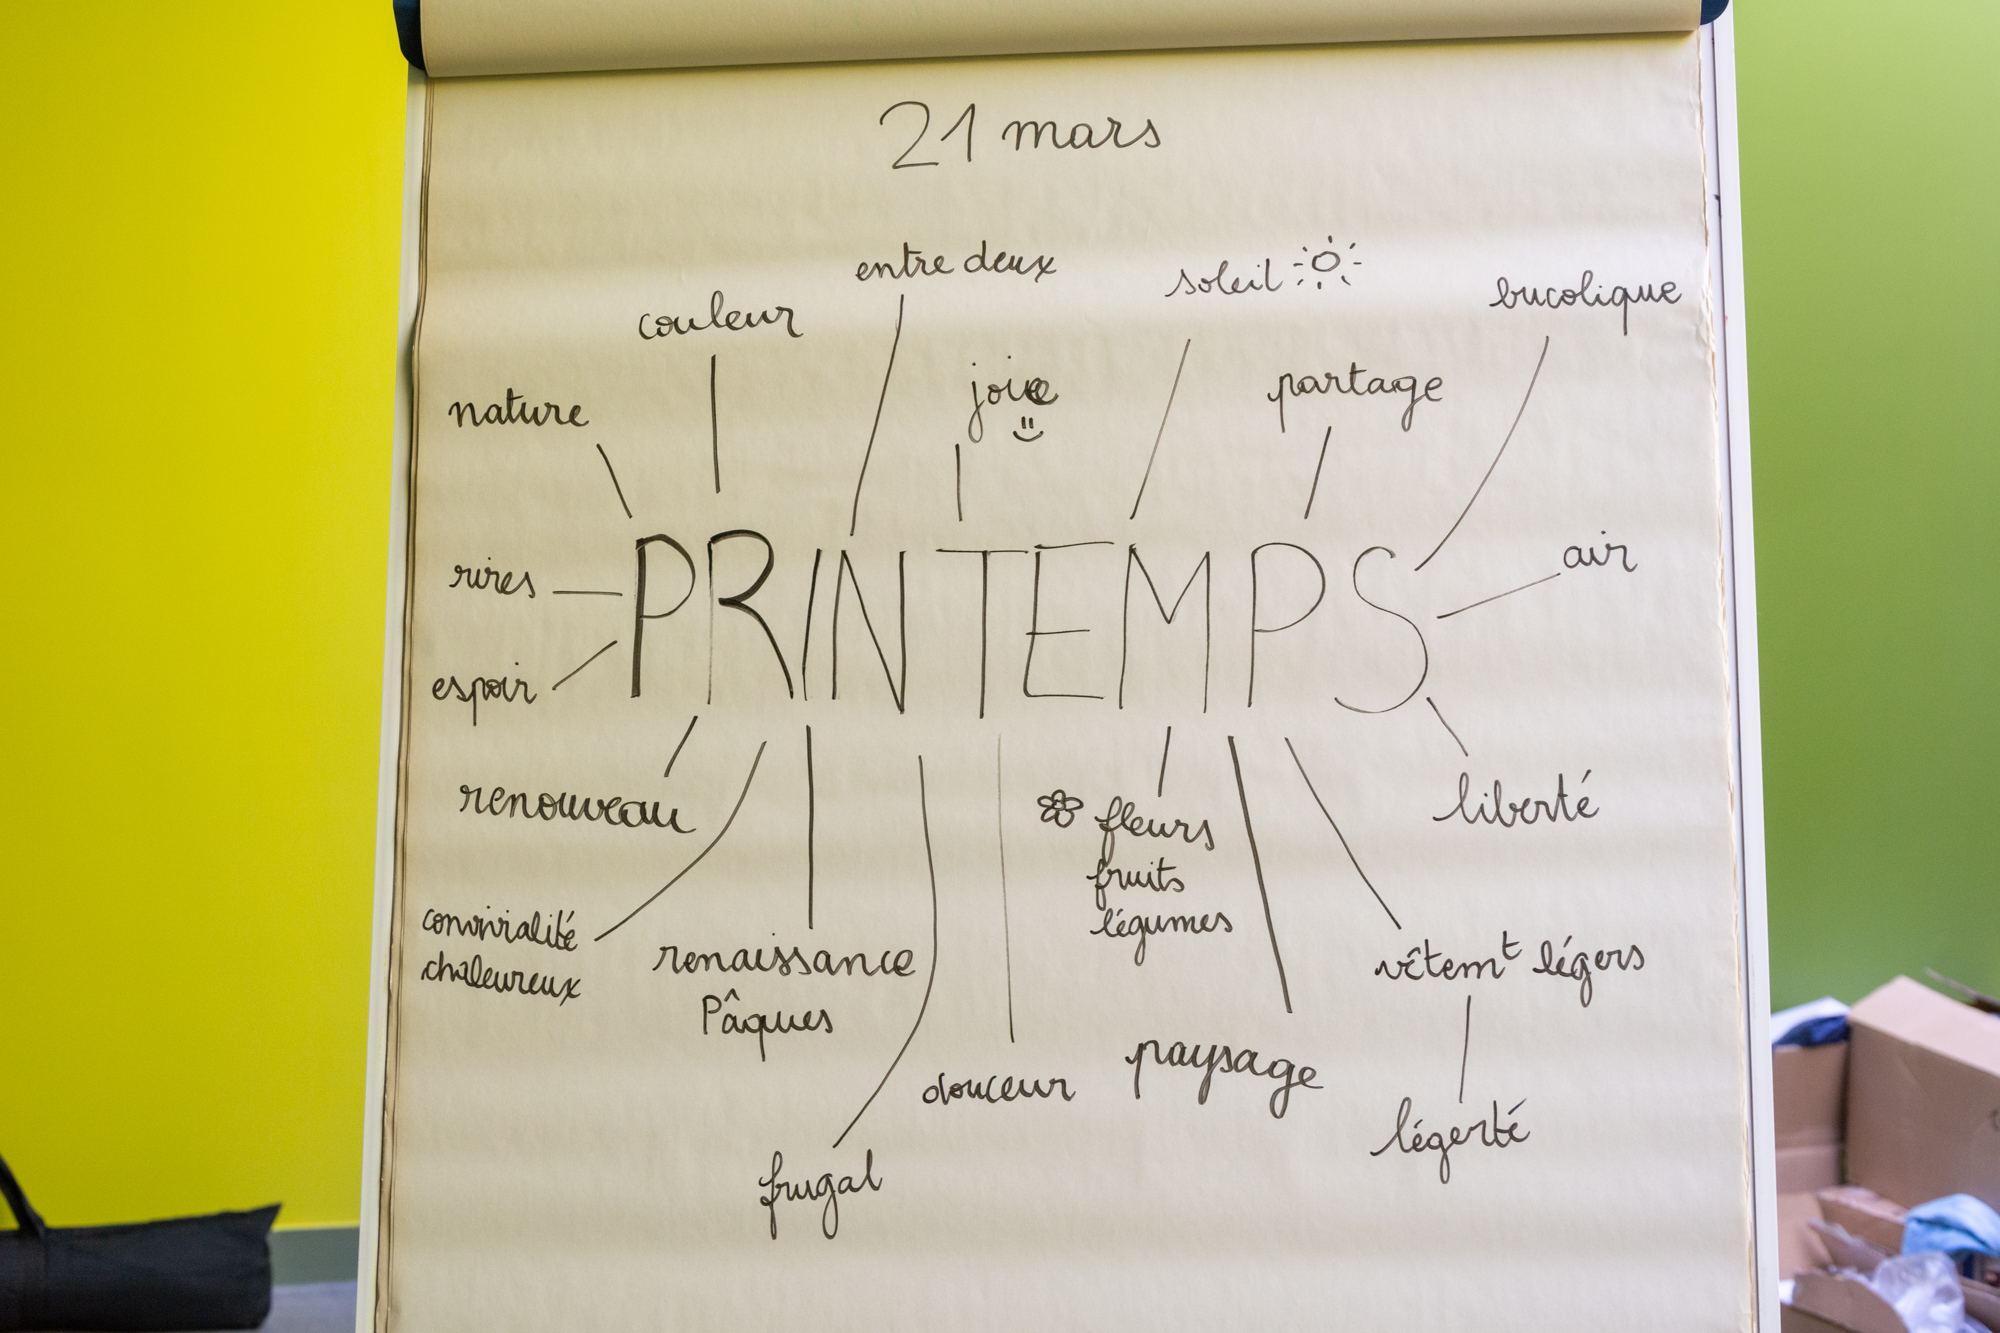 21 mars
entre deux
soleil
bucolique
couleur
joie
partage
nature
PRINTEMPS
air
rires
espoir
renouveau
fleurs
fruits
légumes
liberté
convivialité
chaleureux
renaissance
Pâques
vêtemt légers
paysage
douceur
légerté
frugal